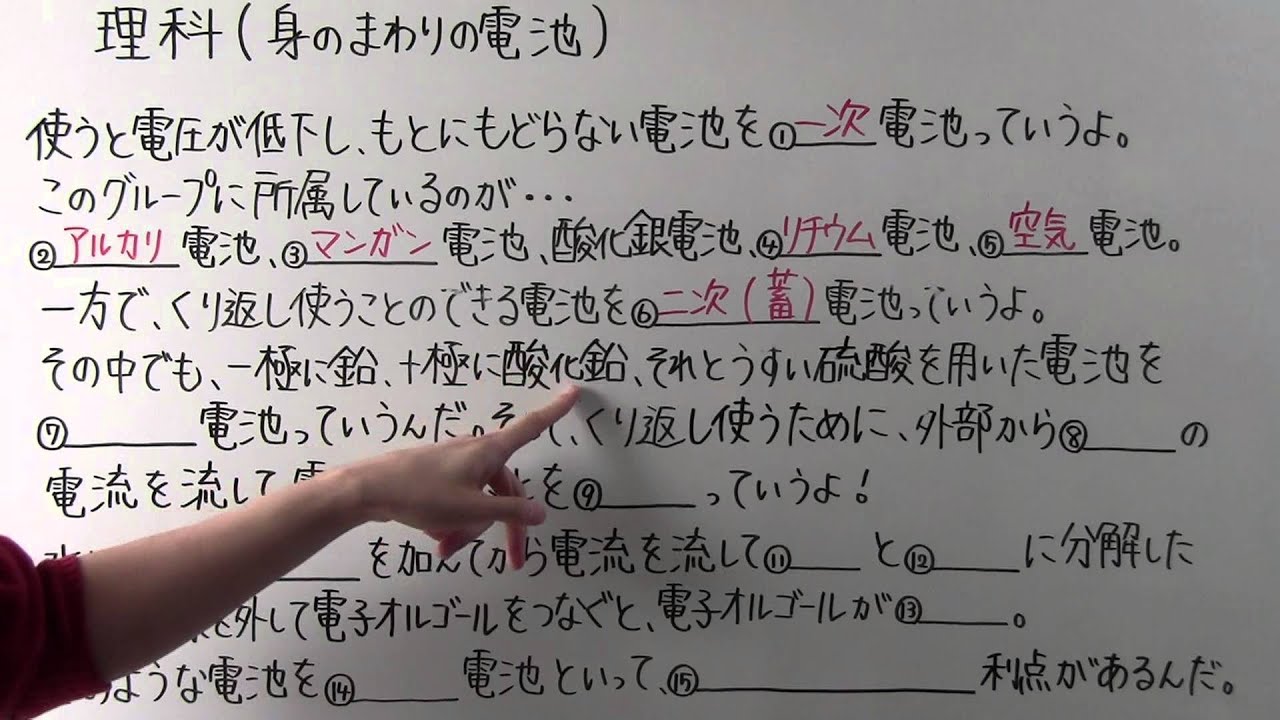 理科(身のまわりの電池)
使うと電圧が低下し、もとにもどらない電池を①一次電池っていうよ。
このグループに所属しているのが・・・
②アルカリ電池、③マンガン電池、酸化銀電池、④リチウム電池、⑤空気電池。
一方で、くり返し使うことのできる電池を⑥二次(蓄)電池っていうよ。
その中でも、一極に鉛、+極に酸化鉛、それとうすい硫酸を用いた電池を
⑦______電池っていうんだ。そ、くり返し使うために、外部から⑧____の
電流を流して とを⑨____っていうよ!
を加えてから電流を流して⑪___と⑫____に分解した
を外して電子オルゴールをつなぐと、電子オルゴールが⑬____。
ような電池を⑭____電池といって、⑮____________利点があるんだ。